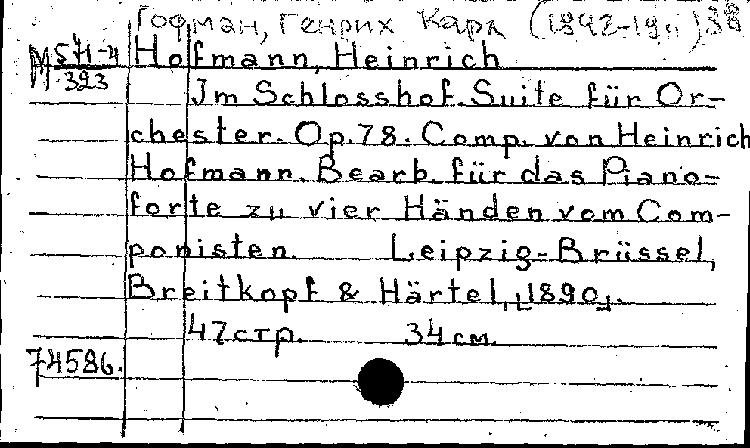 Гофман, Генрих Карл
М 571-4
323
Hofmann, Heinrich
Jm Schlosshof. Suite für Or-
chester. Op.78. Comp. von Heinrich
Hofmann. Bearb. für das Piano-
forte zu vier Händen vom Com-
ponisten. Leipzig-Brüssel,
Breitkopf & Härtel, [1890].
47 стр. 34 см.
74586.